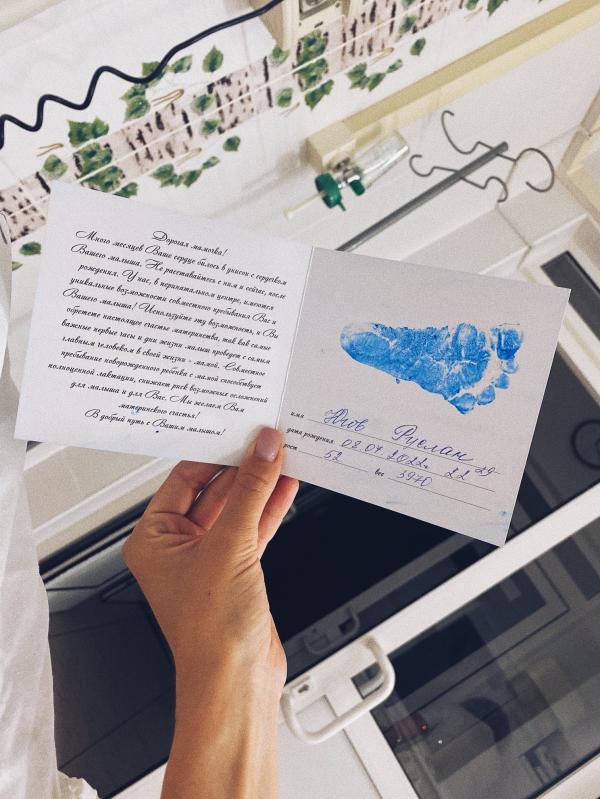 Дорогая мамочка!
Много месяцев Ваше сердце билось в унисон с сердечком
Вашего малыша. Не расставайтесь с ним и сейчас, после
рождения. У нас, в перинатальном центре, имеются
уникальные возможности совместного пребывания Вас и
Вашего малыша! Используйте эту возможность, и Вы
обретете настоящее счастье материнства, так как самые
важные первые часы и дни жизни малыш проведет с самым
главным человеком в своей жизни - мамой. Совместное
пребывание новорожденного ребенка с мамой способствует
полноценной лактации, снижает риск возможных осложнений
для малыша и для Вас. Мы желаем Вам
материнского счастья!
В добрый путь с Вашим малышом!
имя Руслан
дата рождения 08.04.2022г 22 29
рост 52 вес 3970